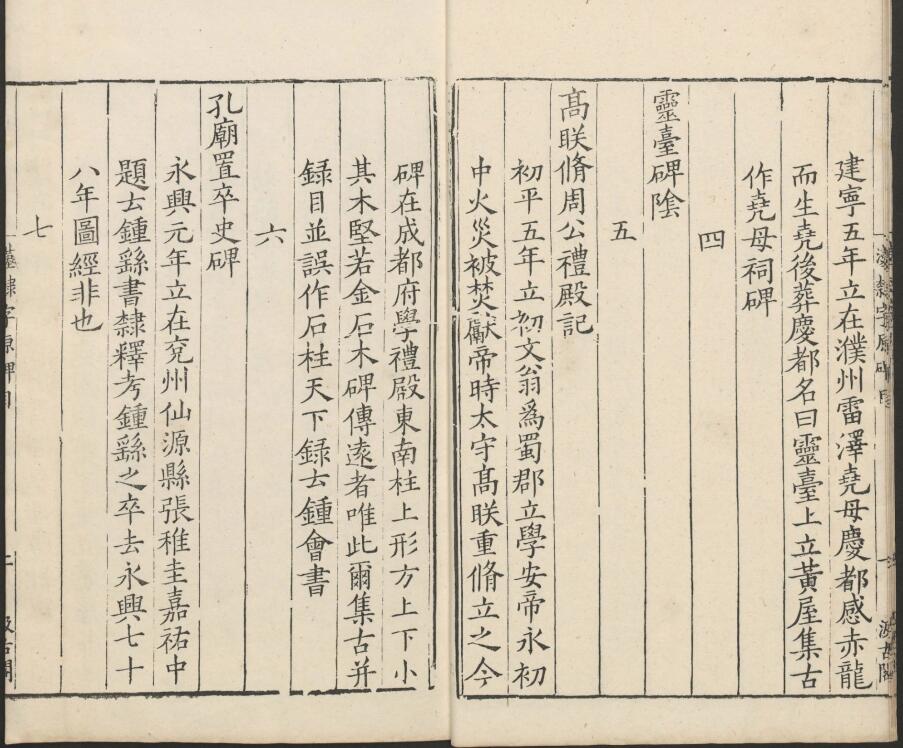 建寧五年立在濮州雷澤堯母慶都感赤龍
而生堯後葬慶都名曰靈臺上立黃屋集古
作堯母祠碑
四
靈臺碑隂
五
髙眹脩周公禮殿記
初平五年立初文翁爲蜀郡立學安帝永初
中火災被焚獻帝時太守髙眹重脩立之今
碑在成都府學禮殿東南柱上形方上下小
其木堅若金石木碑傳遠者唯此爾集古并
録目並誤作石柱天下録云鍾會書
六
孔廟置卒史碑
永興元年立在兖州仙源縣張稚圭嘉祐中
題云鍾繇書隸釋考鍾繇之卒去永興七十
八年圖經非也
七